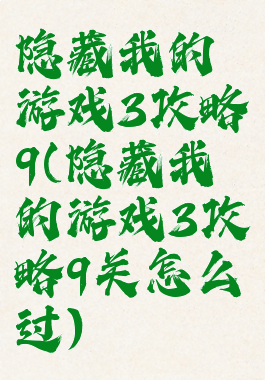 隐藏我的
游戏3攻略
9(隐藏我
的游戏3攻
略9关怎么
过)